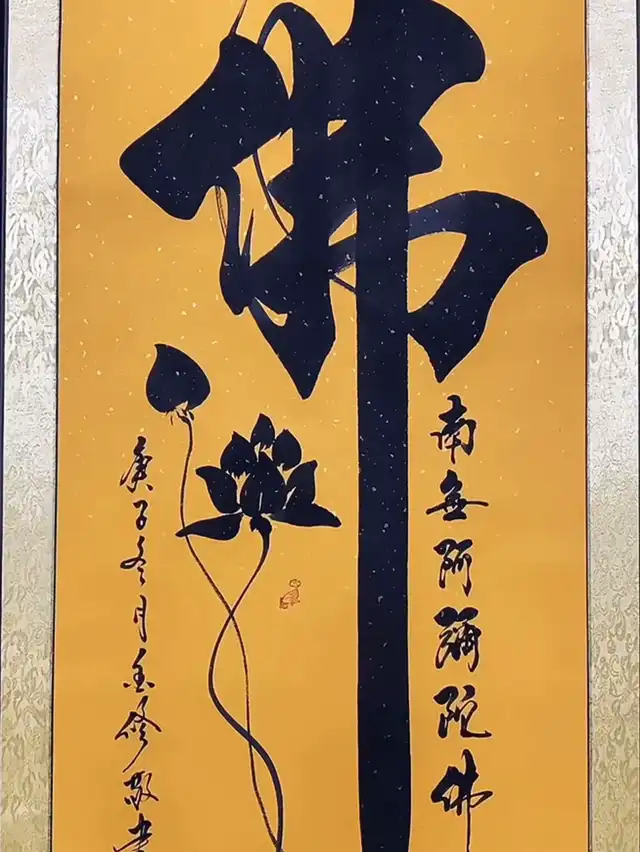 佛
南無阿彌陀佛
庚子冬月修敬書